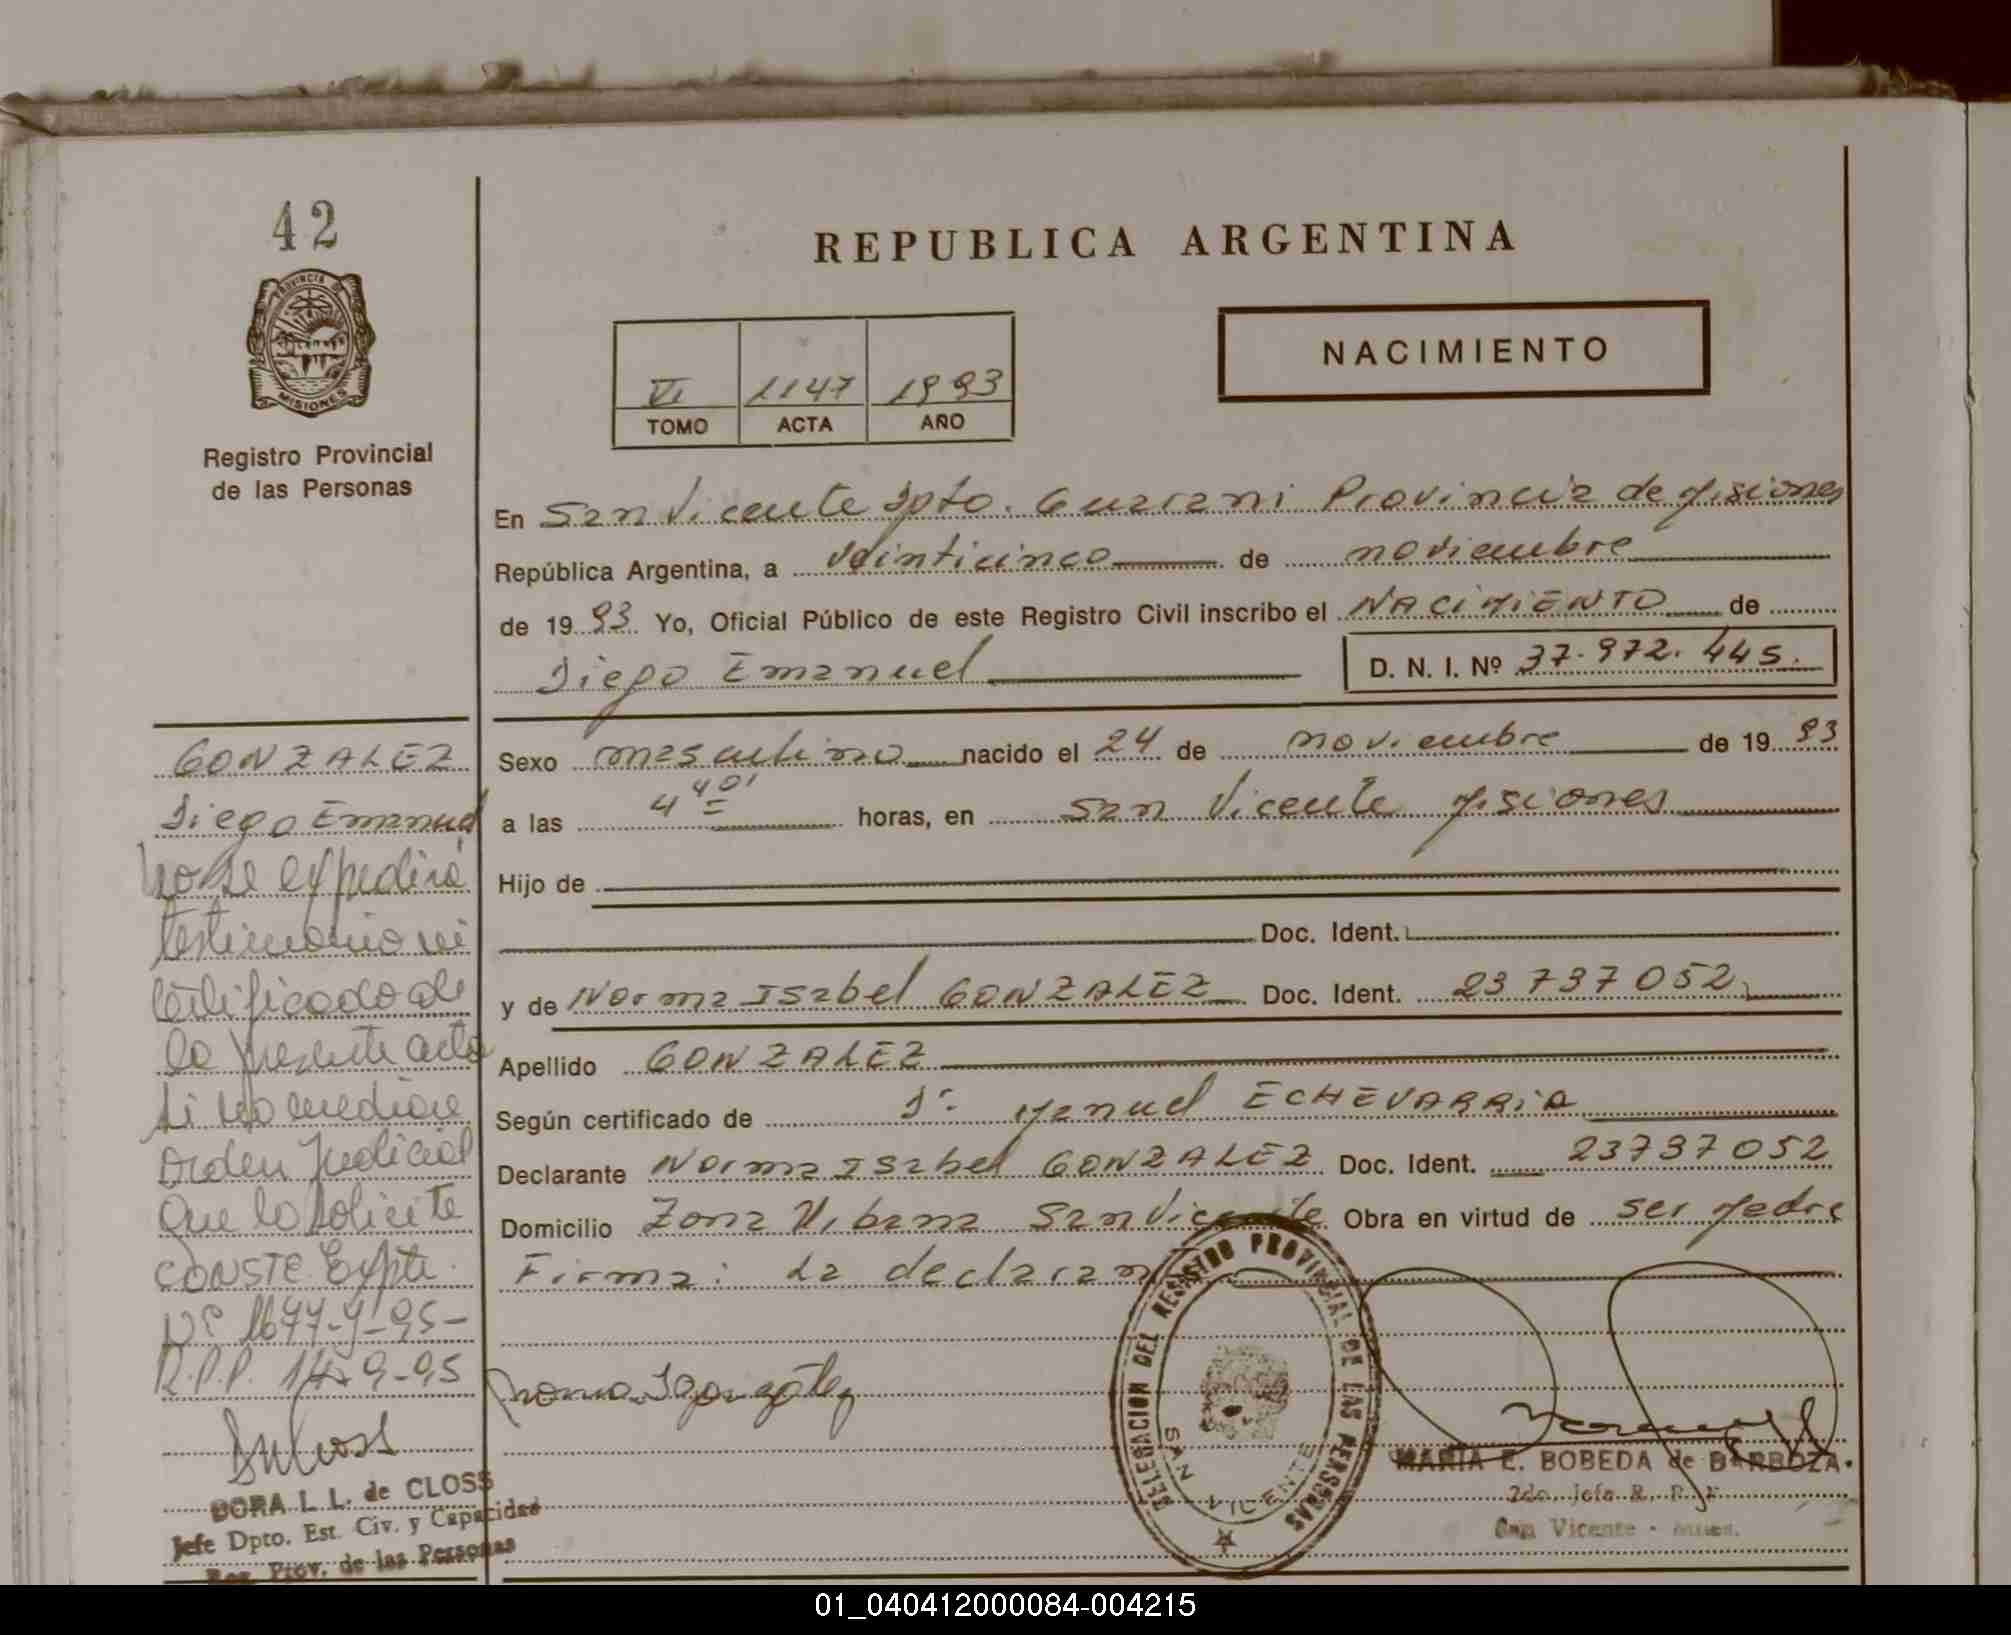 42
PROVINCIA DE
MISIONES
Registro Provincial
de las Personas
REPUBLICA ARGENTINA
NACIMIENTO
VI 1147 1993
TOMO ACTA AÑO
En San Vicente Dpto. Guarani Provincia de Misiones
República Argentina, a veinticinco de noviembre
de 19 93 Yo, Oficial Público de este Registro Civil inscribo el NACIMIENTO de
Diego Emanuel D. N. I. Nº 37.972.445.
GONZALEZ
Diego Emanuel
No se expedirá
testimonio ni
certificado de
la presente acta
si no mediare
orden Judicial
que lo solicite
CONSTE Expte.
Nº 1677-Y-95-
R.P.P. 14-9-95
DORA L. L. de CLOSS
Jefe Dpto. Est. Civ. y Capacidad
Reg. Prov. de las Personas
Sexo masculino nacido el 24 de noviembre de 19 93
a las 4 40' horas, en San Vicente Misiones
Hijo de
Doc. Ident.
y de Norma Isabel GONZALEZ Doc. Ident. 23737052
Apellido GONZALEZ
Según certificado de Dr. Manuel ECHEVARRIA
Declarante Norma Isabel GONZALEZ Doc. Ident. 23737052
Domicilio Zona Urbana San Vicente Obra en virtud de ser Madre
Firma: La declarante
Norma I gonzález
DELEGACION DEL REGISTRO PROVINCIAL DE LAS PERSONAS
SAN VICENTE
MARIA E. BOBEDA de BARBOZA
2do. Jefe R. P. P.
San Vicente - Mnes.
01_040412000084-004215